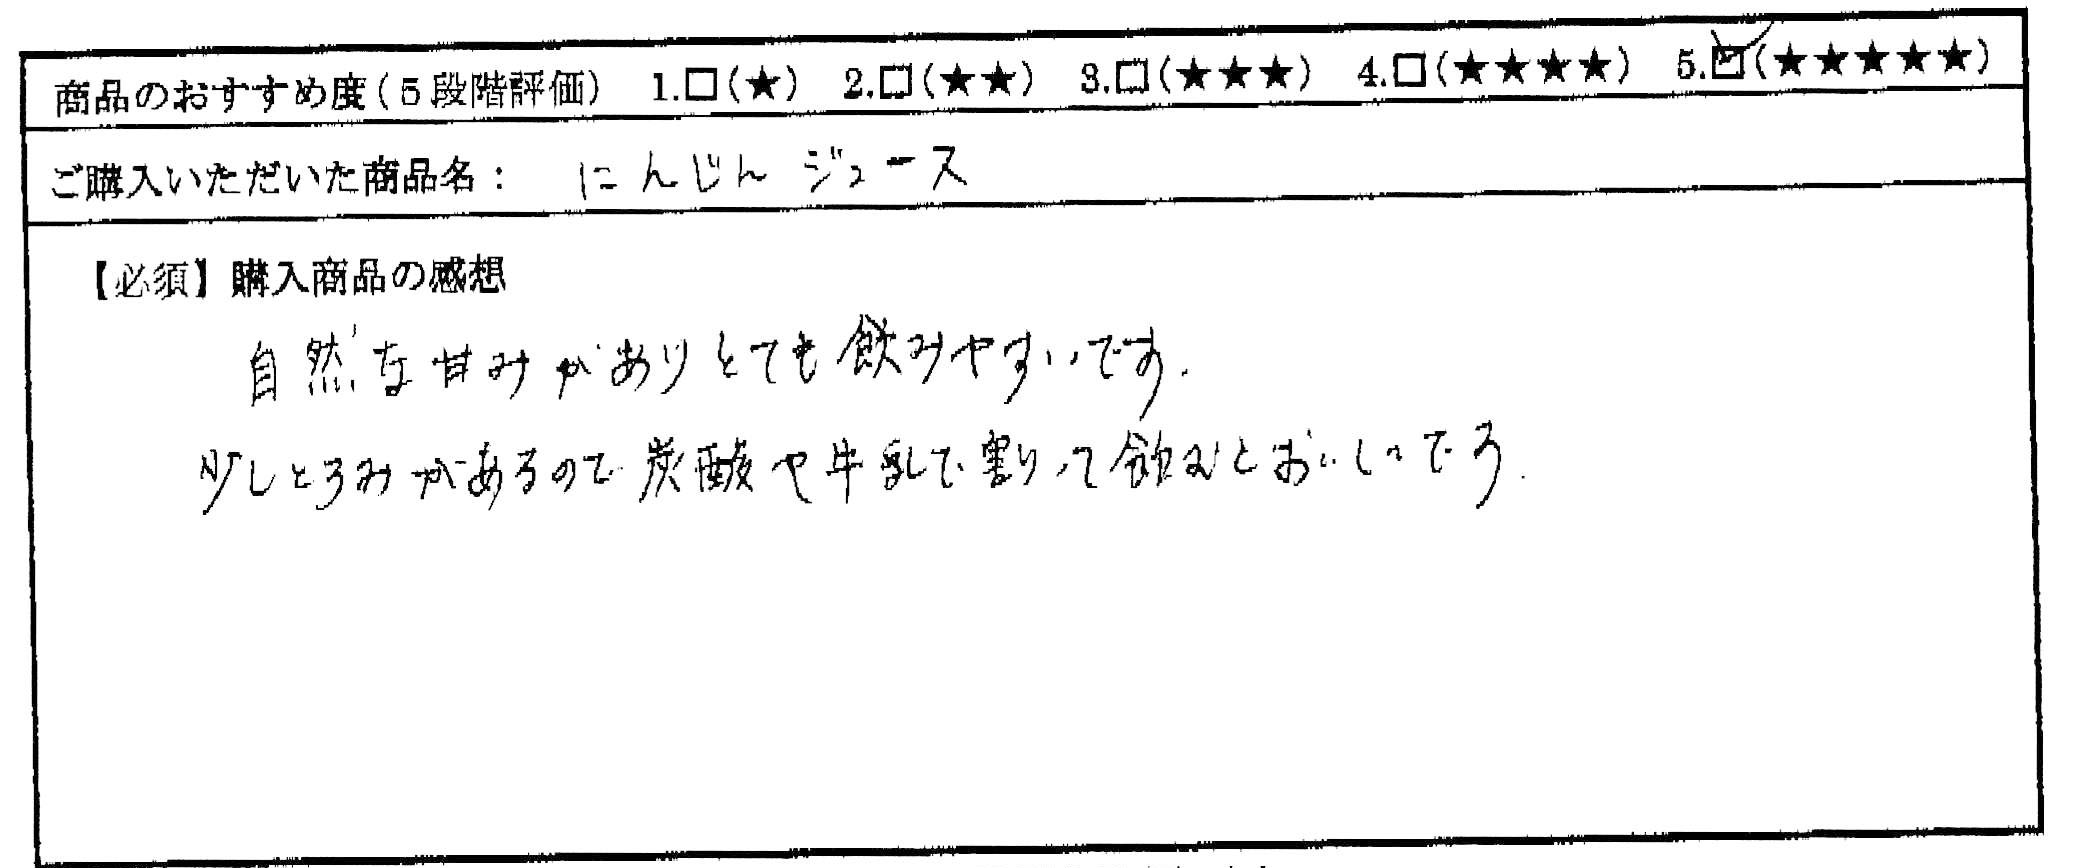 商品のおすすめ度(5段階評価) 1.□(★) 2.□(★★) 3.□(★★★) 4.□(★★★★) 5.☑(★★★★★)
ご購入いただいた商品名: にんじんジュース
【必須】購入商品の感想
自然な甘みがありとても飲みやすいです.
少しとろみがあるので炭酸や牛乳で割って飲むとおいしいです.